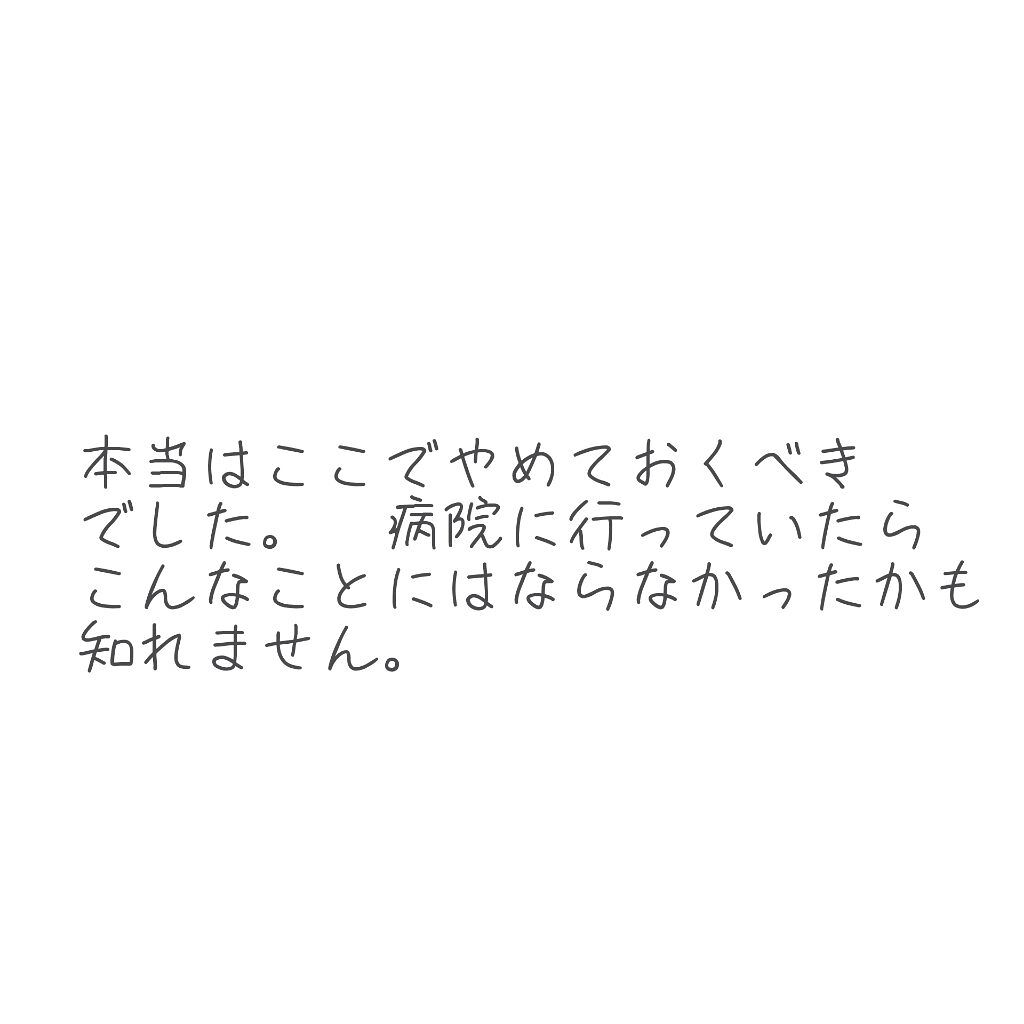 本当はここでやめておくべき
でした。　病院に行っていたら
こんなことにはならなかったかも
知れません。